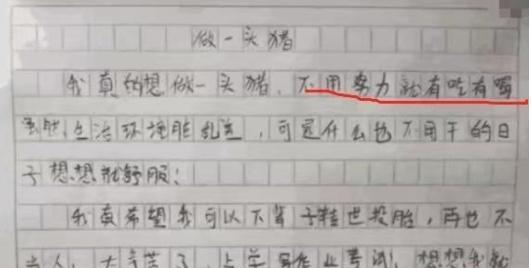 做一头猪
我真的想做一头猪，不用努力就有吃有喝
虽然生活环境脏乱差，可是什么也不用干的日
子想想就舒服！
我真希望我可以下辈子鞋世投胎，再也不
当人，太辛苦了，上学写作业考试，想想我就